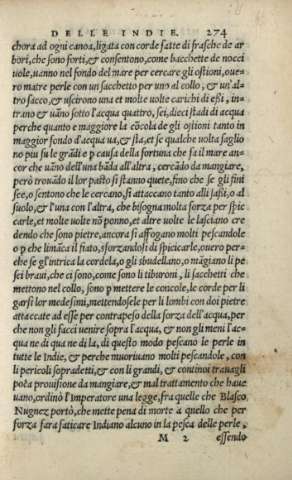 DELLE INDIE. 274
chora ad ogni canoa, ligata con corde fatte di frasche de ar
bori, che sono forti, & consentono, come bacchette de nocci
uole, uanno nel fondo del mare per cercare gli ostioni, ouero
matre perle con un sacchetto per uno al collo, & un'al=
tro sacco, & uscirono una et molte uolte carichi di essi, in=
trano & uāno sotto l'acqua quattro, sei, dieci stadi di acqua
perche quanto e maggiore la cōcola de gli ostioni tanto in
maggior fondo d'acqua ua, & sta, et se qualche uolta saglio
no piu su le grādi e p causa della fortuna che fa il mare an=
cor che uāno dell'una bāda all'altra, cercādo da mangiare,
però trouādo il lor pasto si stanno quete, fino che se gli fini
sce, o sentono che le cercano, si attaccano tanto alli sassi, o al
suolo, & l'una con l'altra, che bisogna molta forza per spic
carle, et molte uolte nō ponno, et altre uolte le lasciano cre
dendo che sono pietre, ancora si affogano molti pescandole
o p che li māca il fiato, sforzandosi di spicicarle, ouero per=
che se gl'intrica la cordela, o gli sbudellano, o māgiano li pe
sci braui, che ci sono, come sono li tiburoni, li sacchetti che
mettono nel collo, sono p mettere le concole, le corde per li
garsi lor medesimi, mettendosele per li lombi con doi pietre
attaccate ad esse per contrapeso della forza dell'acqua, per
che non gli facci uenire sopra l'acqua, & non gli meni l'ac=
qua ne di qua ne di la, di questo modo pescano le perle in
tutte le Indie, & perche muoriuano molti pescandole, con
li pericoli sopradetti, & con li grandi, & continoi trauagli
poca prouisione da mangiare, & mal trattamento che haue
uano, ordinò l'Imperatore una legge, fra quelle che Blasco
Nugnez portò, che mette pena di morte a quello che per
forza fara faticare Indiano alcuno in la pesca delle perle,
M 2 essendo